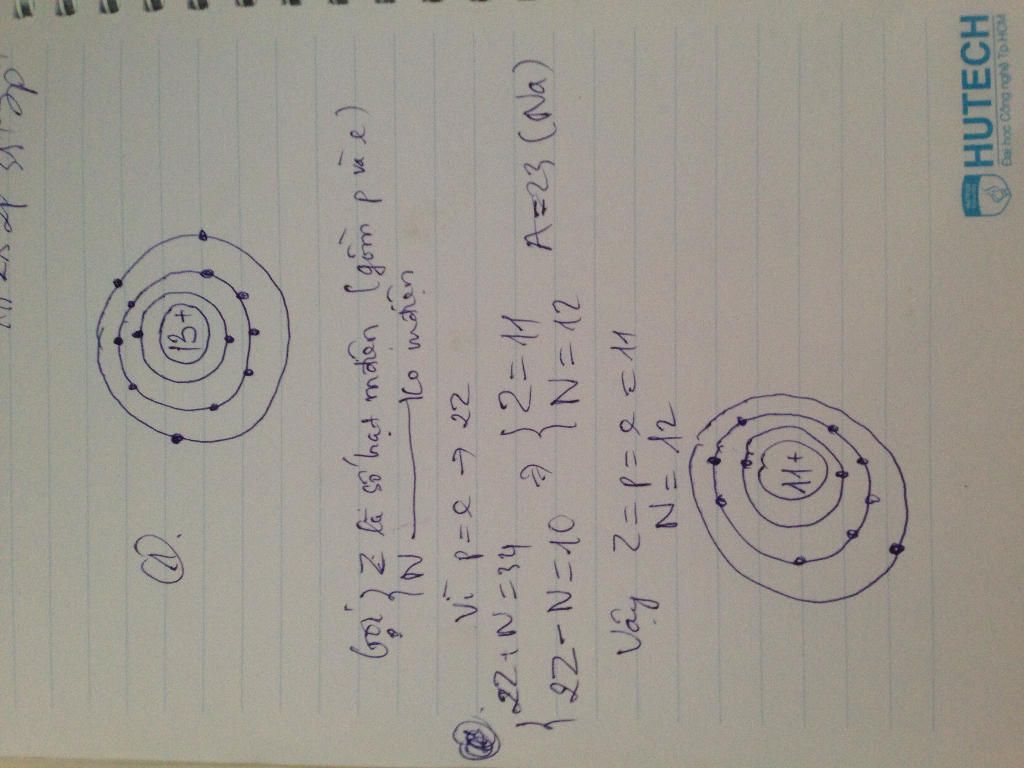 13+
Gọi { Z là số hạt mđiện (gồm p và e)
N ——— ko mđiện
Vì p = e → 2Z
{ 2Z + N = 34
2Z - N = 10 => { Z = 11
N = 12 A = 23 (Na)
Vậy Z = p = e = 11
N = 12
11+
HUTECH
Đại học Công nghệ Tp.HCM